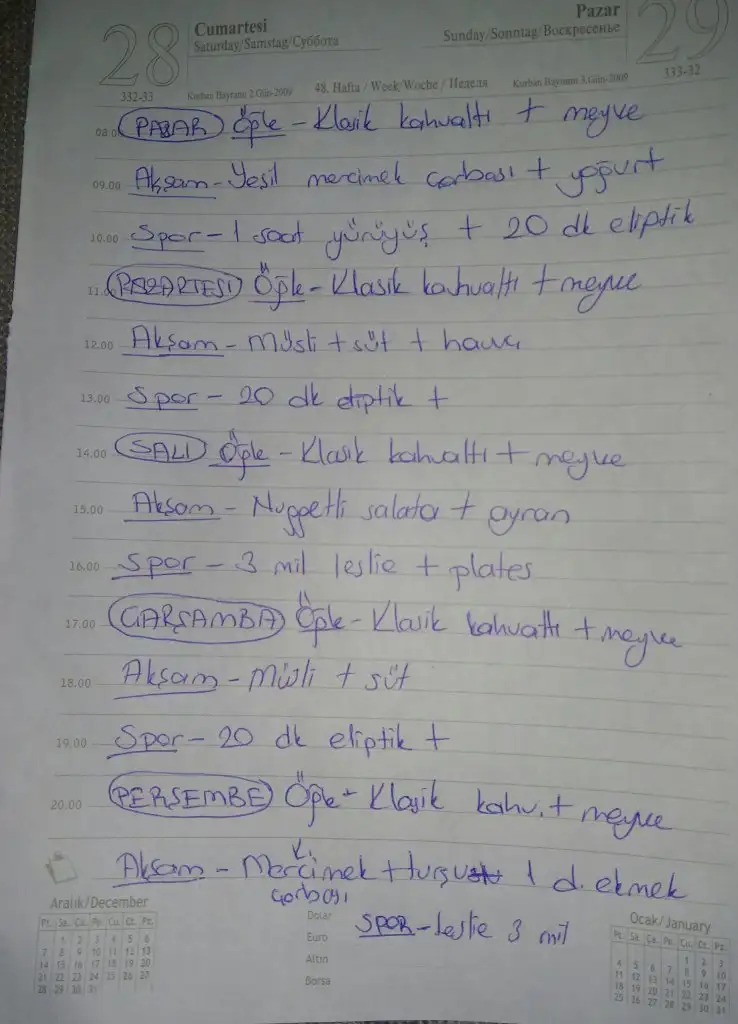 28 Cumartesi Pazar 29
Saturday/Samstag/Суббота Sunday/Sonntag/Воскресенье
332-33 Kurban Bayramı 2.Gün-2009 48. Hafta / Week/Woche / Неделя Kurban Bayramı 3.Gün-2009 333-32
08.0 PAZAR Öğle - Klasik kahvaltı + meyve
09.00 Akşam - Yeşil mercimek çorbası + yoğurt
10.00 Spor - 1 saat yürüyüş + 20 dk eliptik
11.0 PAZARTESİ Öğle - Klasik kahvaltı + meyve
12.00 Akşam - Müsli + süt + havuç
13.00 Spor - 20 dk eliptik +
14.00 SALI Öğle - Klasik kahvaltı + meyve
15.00 Akşam - Nuggetlı salata + ayran
16.00 Spor - 3 mil leslie + plates
17.00 ÇARŞAMBA Öğle - Klasik kahvaltı + meyve
18.00 Akşam - Müsli + süt
19.00 Spor - 20 dk eliptik +
20.00 PERŞEMBE Öğle - Klasik kahv. + meyve
Akşam - Mercimek + turşu 1 d. ekmek
çorbası
SPOR - Leslie 3 mil
Dolar
Euro
Altın
Borsa
Aralık/December
Pt. Sa. Ça. Pe. Cu. Ct. Pz.
1 2 3 4 5 6
7 8 9 10 11 12 13
14 15 16 17 18 19 20
21 22 23 24 25 26 27
28 29 30 31
Ocak/January
Pt. Sa. Ça. Pe. Cu. Ct. Pz.
1 2 3
4 5 6 7 8 9 10
11 12 13 14 15 16 17
18 19 20 21 22 23 24
25 26 27 28 29 30 31